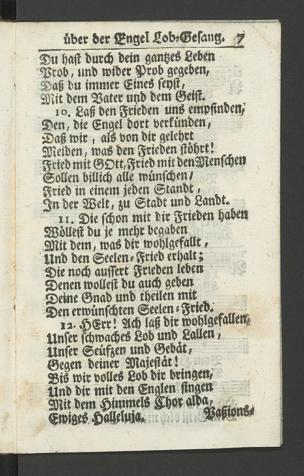 über der Engel Lob-Gesang. 7
Du hast durch dein gantzes Leben
Prob, und wider Prob gegeben,
Daß du immer Eines seyst,
Mit dem Vater und dem Geist.
10. Laß den Frieden uns empfinden,
Den, die Engel dort verkünden,
Daß wir, als von dir gelehrt
Meiden, was den Frieden stöhrt!
Fried mit GOtt, Fried mit den Menschen
Sollen billich alle wünschen/
Fried in einem jeden Standt,
In der Welt, zu Stadt und Landt.
11. Die schon mit dir Frieden haben
Wöllest du je mehr begaben
Mit dem, was dir wohlgefallt,
Und den Seelen-Fried erhalt;
Die noch aussert Frieden leben
Denen wollest du auch geben
Deine Gnad und theilen mit
Den erwünschten Seelen-Fried.
12. HErr! Ach laß dir wohlgefallen,
Unser schwaches Lob und Lallen,
Unser Seüfzen und Gebät,
Gegen deiner Majestät!
Bis wir volles Lob dir bringen,
Und dir mit den Englen singen
Mit dem Himmels Chor alda,
Ewiges Halleluja. Paßions-